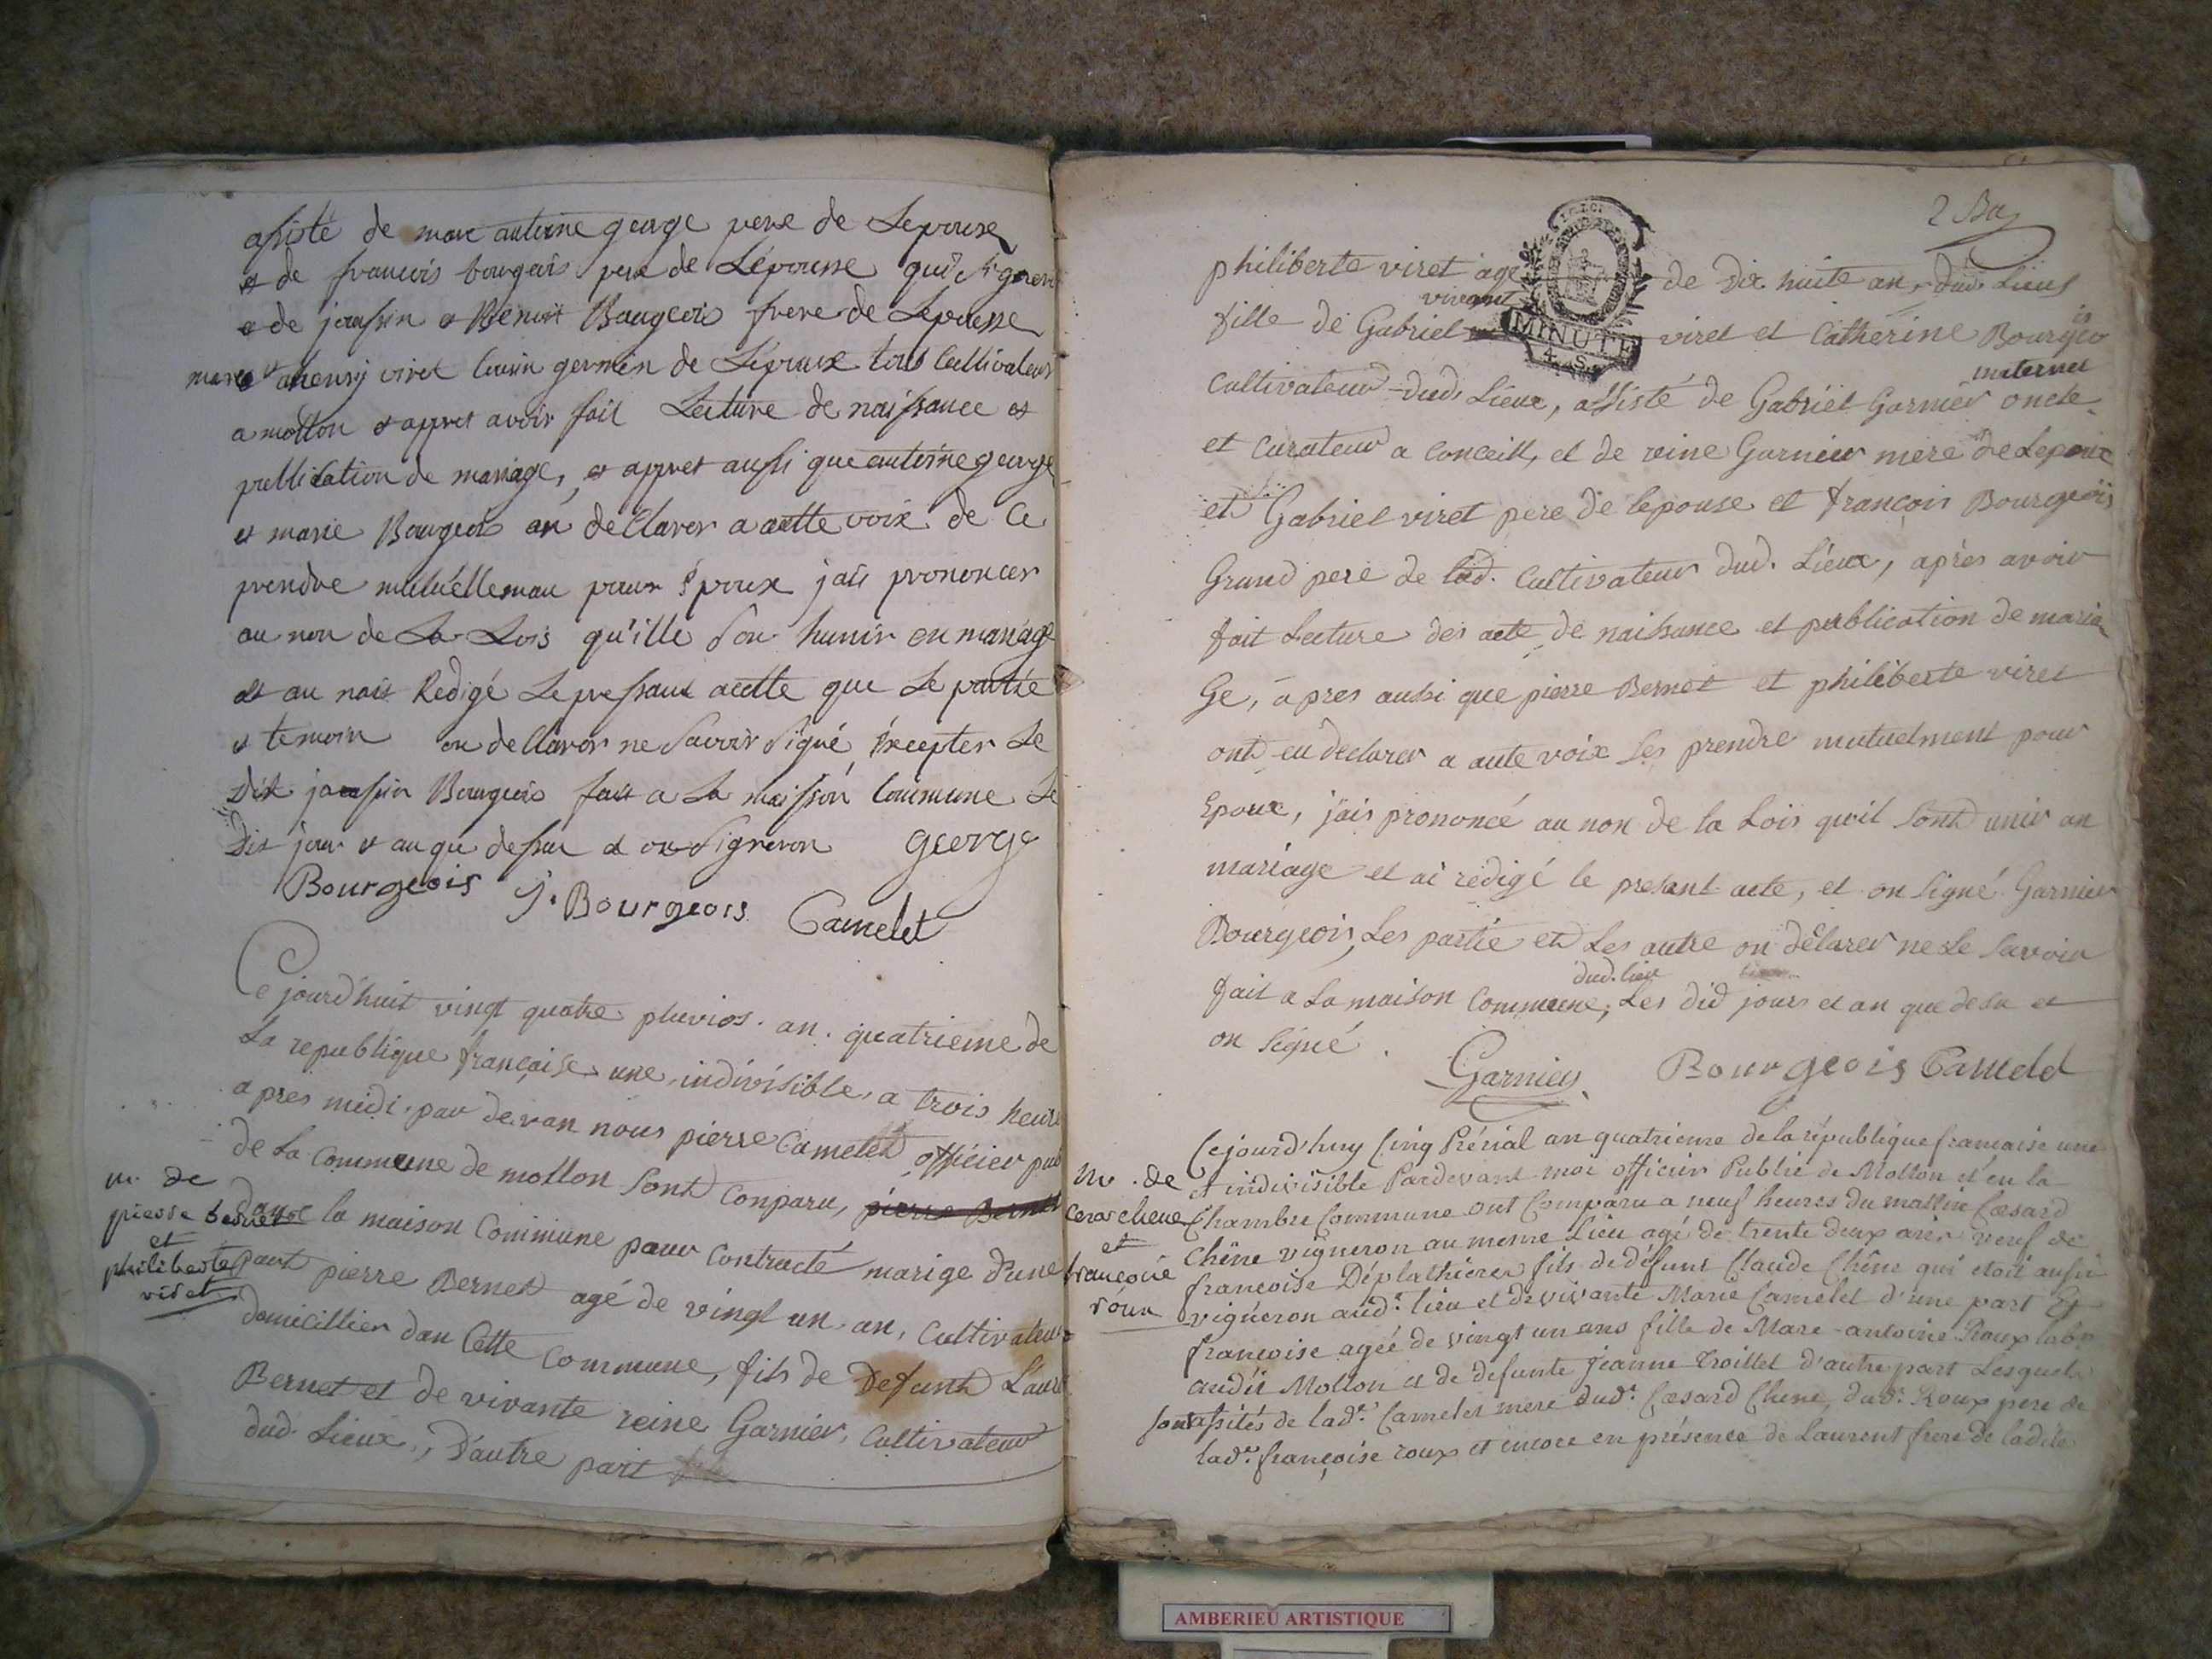 assisté de marc antoine george pere de Lepoux
et de francois bourgeois pere de Lépousse qui signeron
et de joassin et Benoit Baugeois frere de Lepousse
marc et anenry viret Cousin germin de Lépoux tous Cultivateur
a mollon et appret avoir fait Lecture de naissance et
publication de mariage, et appret aussi que antoine george
et marie Baugeois on de Clarer a autte voix de Ce
prendre mutuellemau pour époux jais prononcer
au non de La Lois qu'ille son hunir en mariage
et au nais Redigé Le pressant actte que Le partie
et temoin on de Clarer ne Savoir Signé Excepter Le
dit joassin Bourgeois fait a La maison Commune Le
dit jour et an que dessu et on Signeron george
Bourgeois J. Bourgeois Camelet
Ce jourdhuit vingt quatre pluvios. an. quatrieme de
La republique française une indivisible, a trois heure
apres midi. par devan nous pierre Camelet officier pub
de La Commune de mollon Sont Conparu, pierre Bernet
m. de
pierre bernet
et
philiberte
viret
dans la maison Commune pour Contracté marige d'une
part pierre Bernet agé de vingt un an, Cultivateur
domicillier dan Cette Commune, fils de Defunt Laure
Bernet et de vivante reine Garnier, Cultivateur
dud. Lieux, D'autre part
2 Ba
MINUTE
4. S.
philiberte viret age de dix huite an, dud. Lieus
fille de Gabriel vivant viret et Catherine Bourgeois
Cultivateur dud. Lieux, assisté de Gabriel Garnier oncle maternel
et Curateur a Conceill, et de reine Garnier mere de Lepoux
et Gabriel viret pere de lepouse et francois Bourgeois
Grand pere de lad. Cultivateur dud. Lieux, après avoir
fait Lecture des acte de naissance et publication de maria
Ge, apres aussi que pierre Bernet et philiberte viret
ont eu declarer a aute voix Les prendre mutuelment pour
Epoux, jais prononcé au non de la Lois quil Sont unir an
mariage et ai redigé le presant acte, et on Signé Garnier
Bourgeois, Les partie et Les autre on délarer ne Le Savoir
fait a La maison Commune, dud. lieu Les did jours et an que desu et
on Signé.
Garnier Bourgeois Camelet
Cejourd'huy Cinq Prérial an quatrieme de la république francaise une
et indivisible Pardevant moi officier Public de Mollon et en la
m. de
Cesar chene
et
francoise
roux
Chambre Commune ont Comparu a neuf heures du mattin Cæsard
Chêne vigneron au meme Lieu agé de trente deux ans veuf de
francoise Déplathieres fils de défunt Claude Chêne qui etoit aussi
vigneron aud. lieu et de vivante Marie Camelet d'une part Et
francoise agée de vingt un ans fille de Marc-antoine Roux lab.
audit Mollon et de defunte jeanne Troillet d'autre part Lesquels
sont assités de lad. Camelet mere dud. Cæsard Chene, dud. Roux pere de
lad. françoise roux et encore en présence de Laurent frere de ladite
AMBERIEU ARTISTIQUE